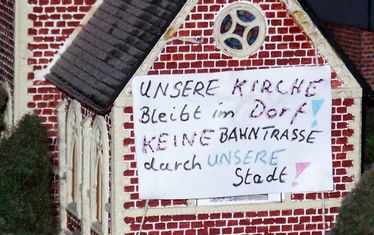 UNSERE KIRCHE
Bleibt im Dorf!
KEINE BAHNTRASSE
durch UNSERE
Stadt!